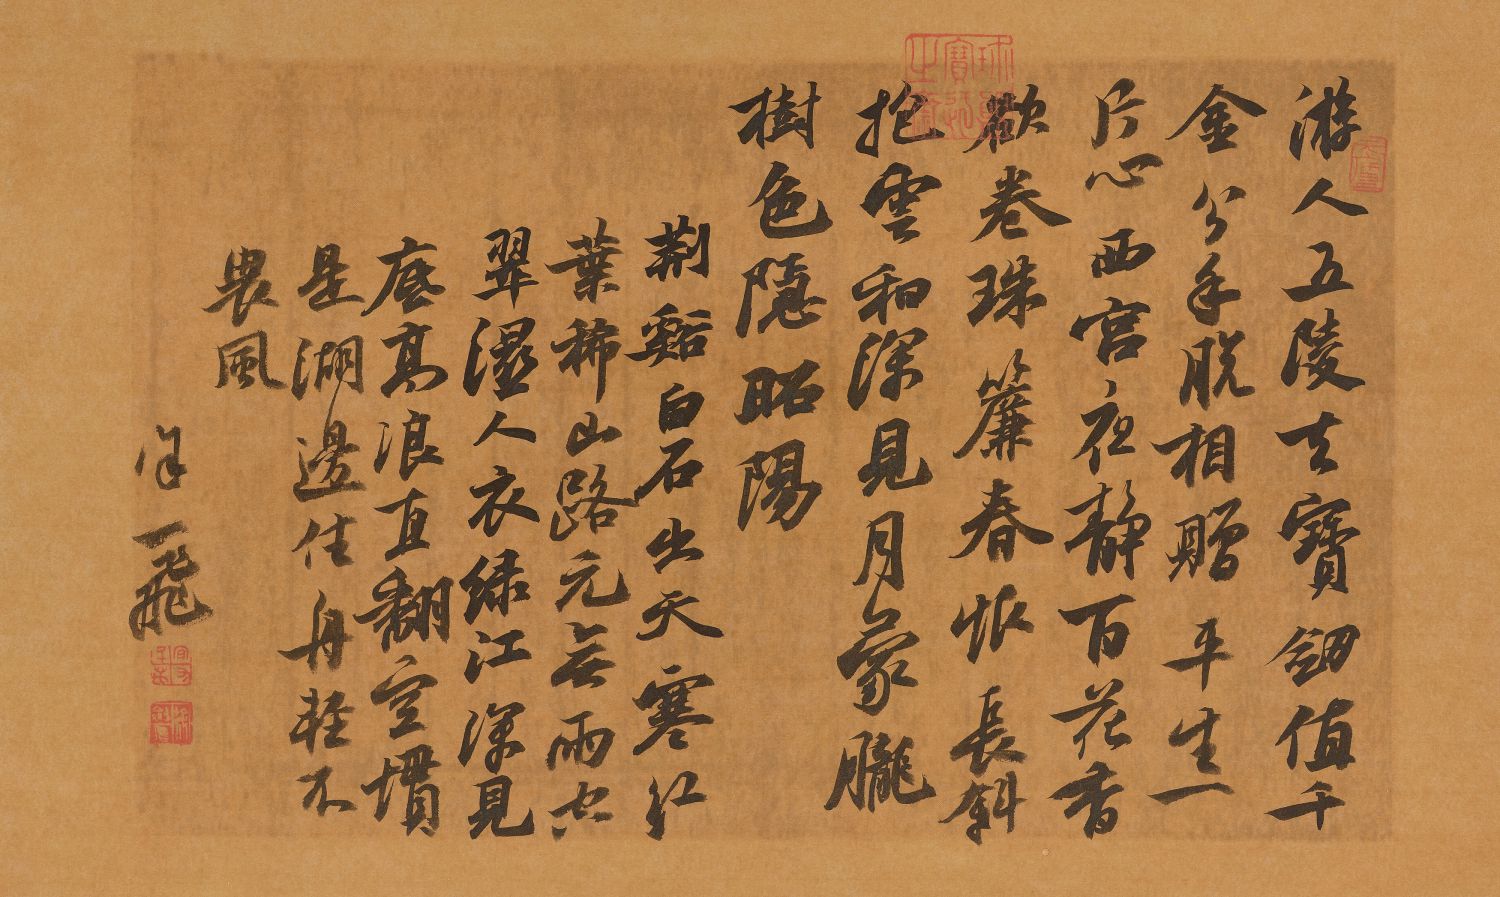 游人五陵去寶劒值千
金分手脫相贈平生一
片心西宮夜静百花香
欲卷珠簾春恨長斜
抱雲和深見月蒙朧
樹色隱昭陽
荆谿白石出天寒紅
葉稀山路元無雨空
翠濕人衣緑江深見
底高浪直翻空慣
是湖邊住舟輕不
畏風
一飛